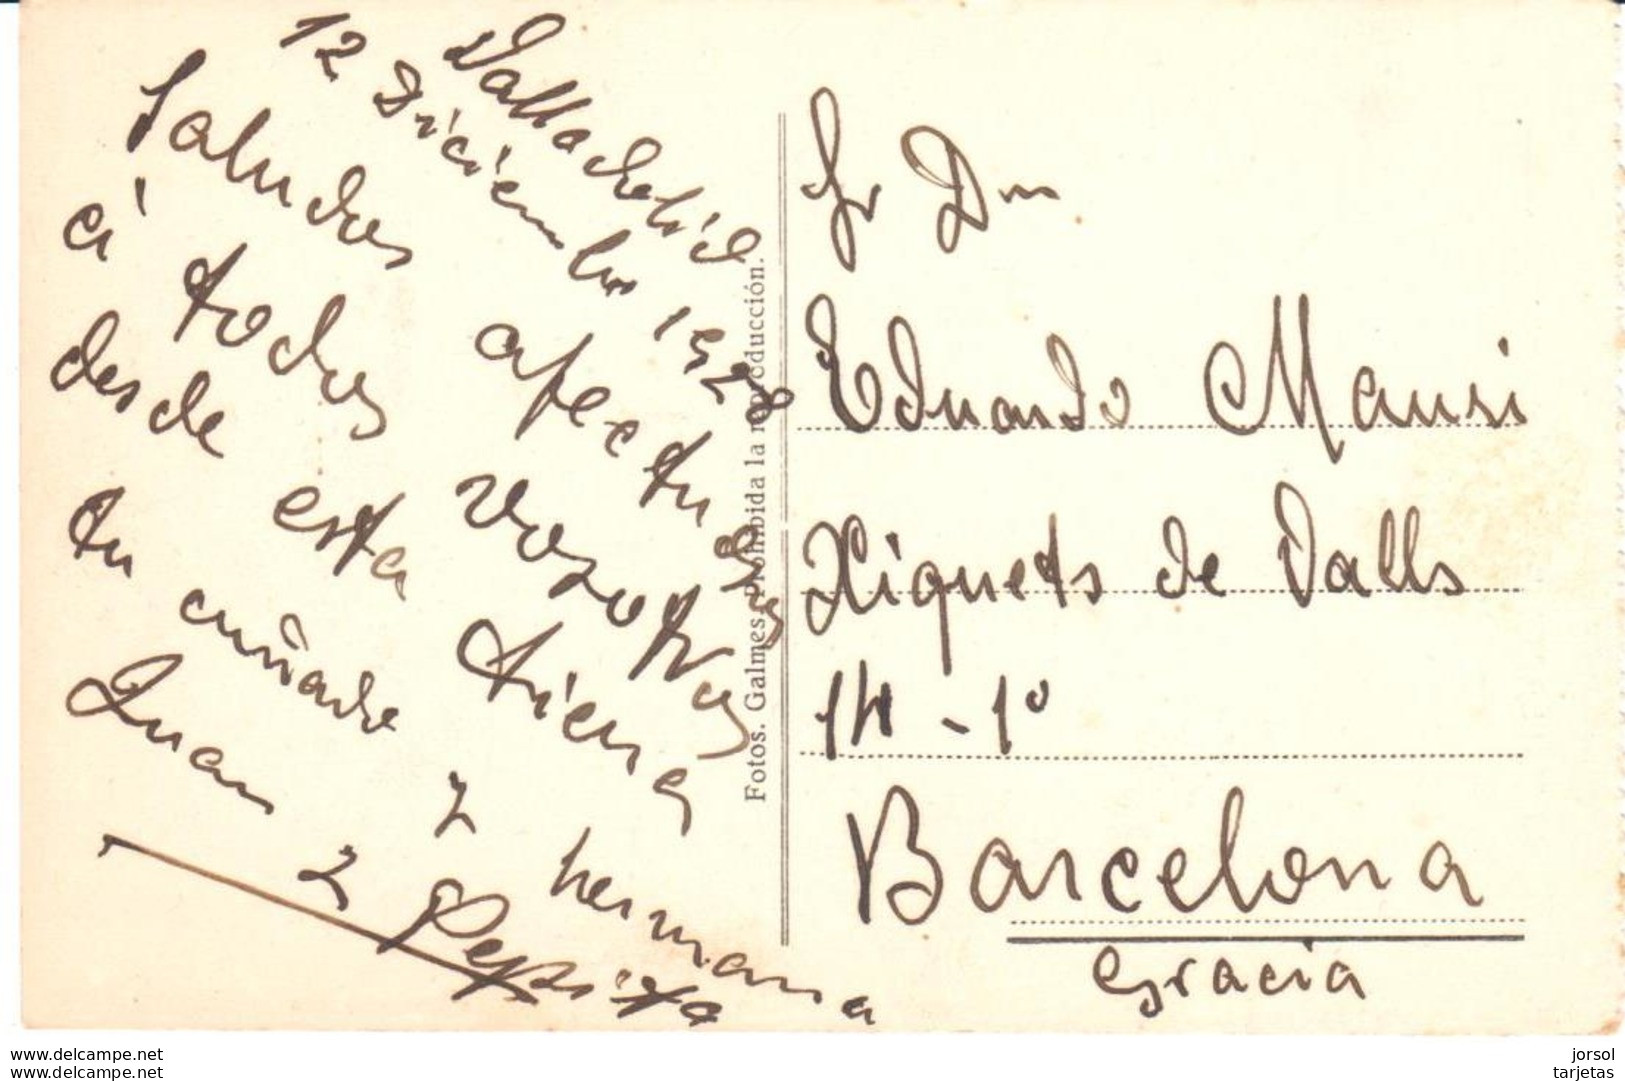 Valladolid
12 Diciembre 1928
Saludos afectuosos
a todos vosotros
desde esta tierra
tu cuñado y hermana
Juan y Pepita
Fotos. Galmes. Prohibida la reproducción.
Sr Dn
Eduardo Mausi
Xiquets de Valls
14 - 1º
Barcelona
Gracia
www.delcampe.net
www.delcampe.net
jorsol
tarjetas